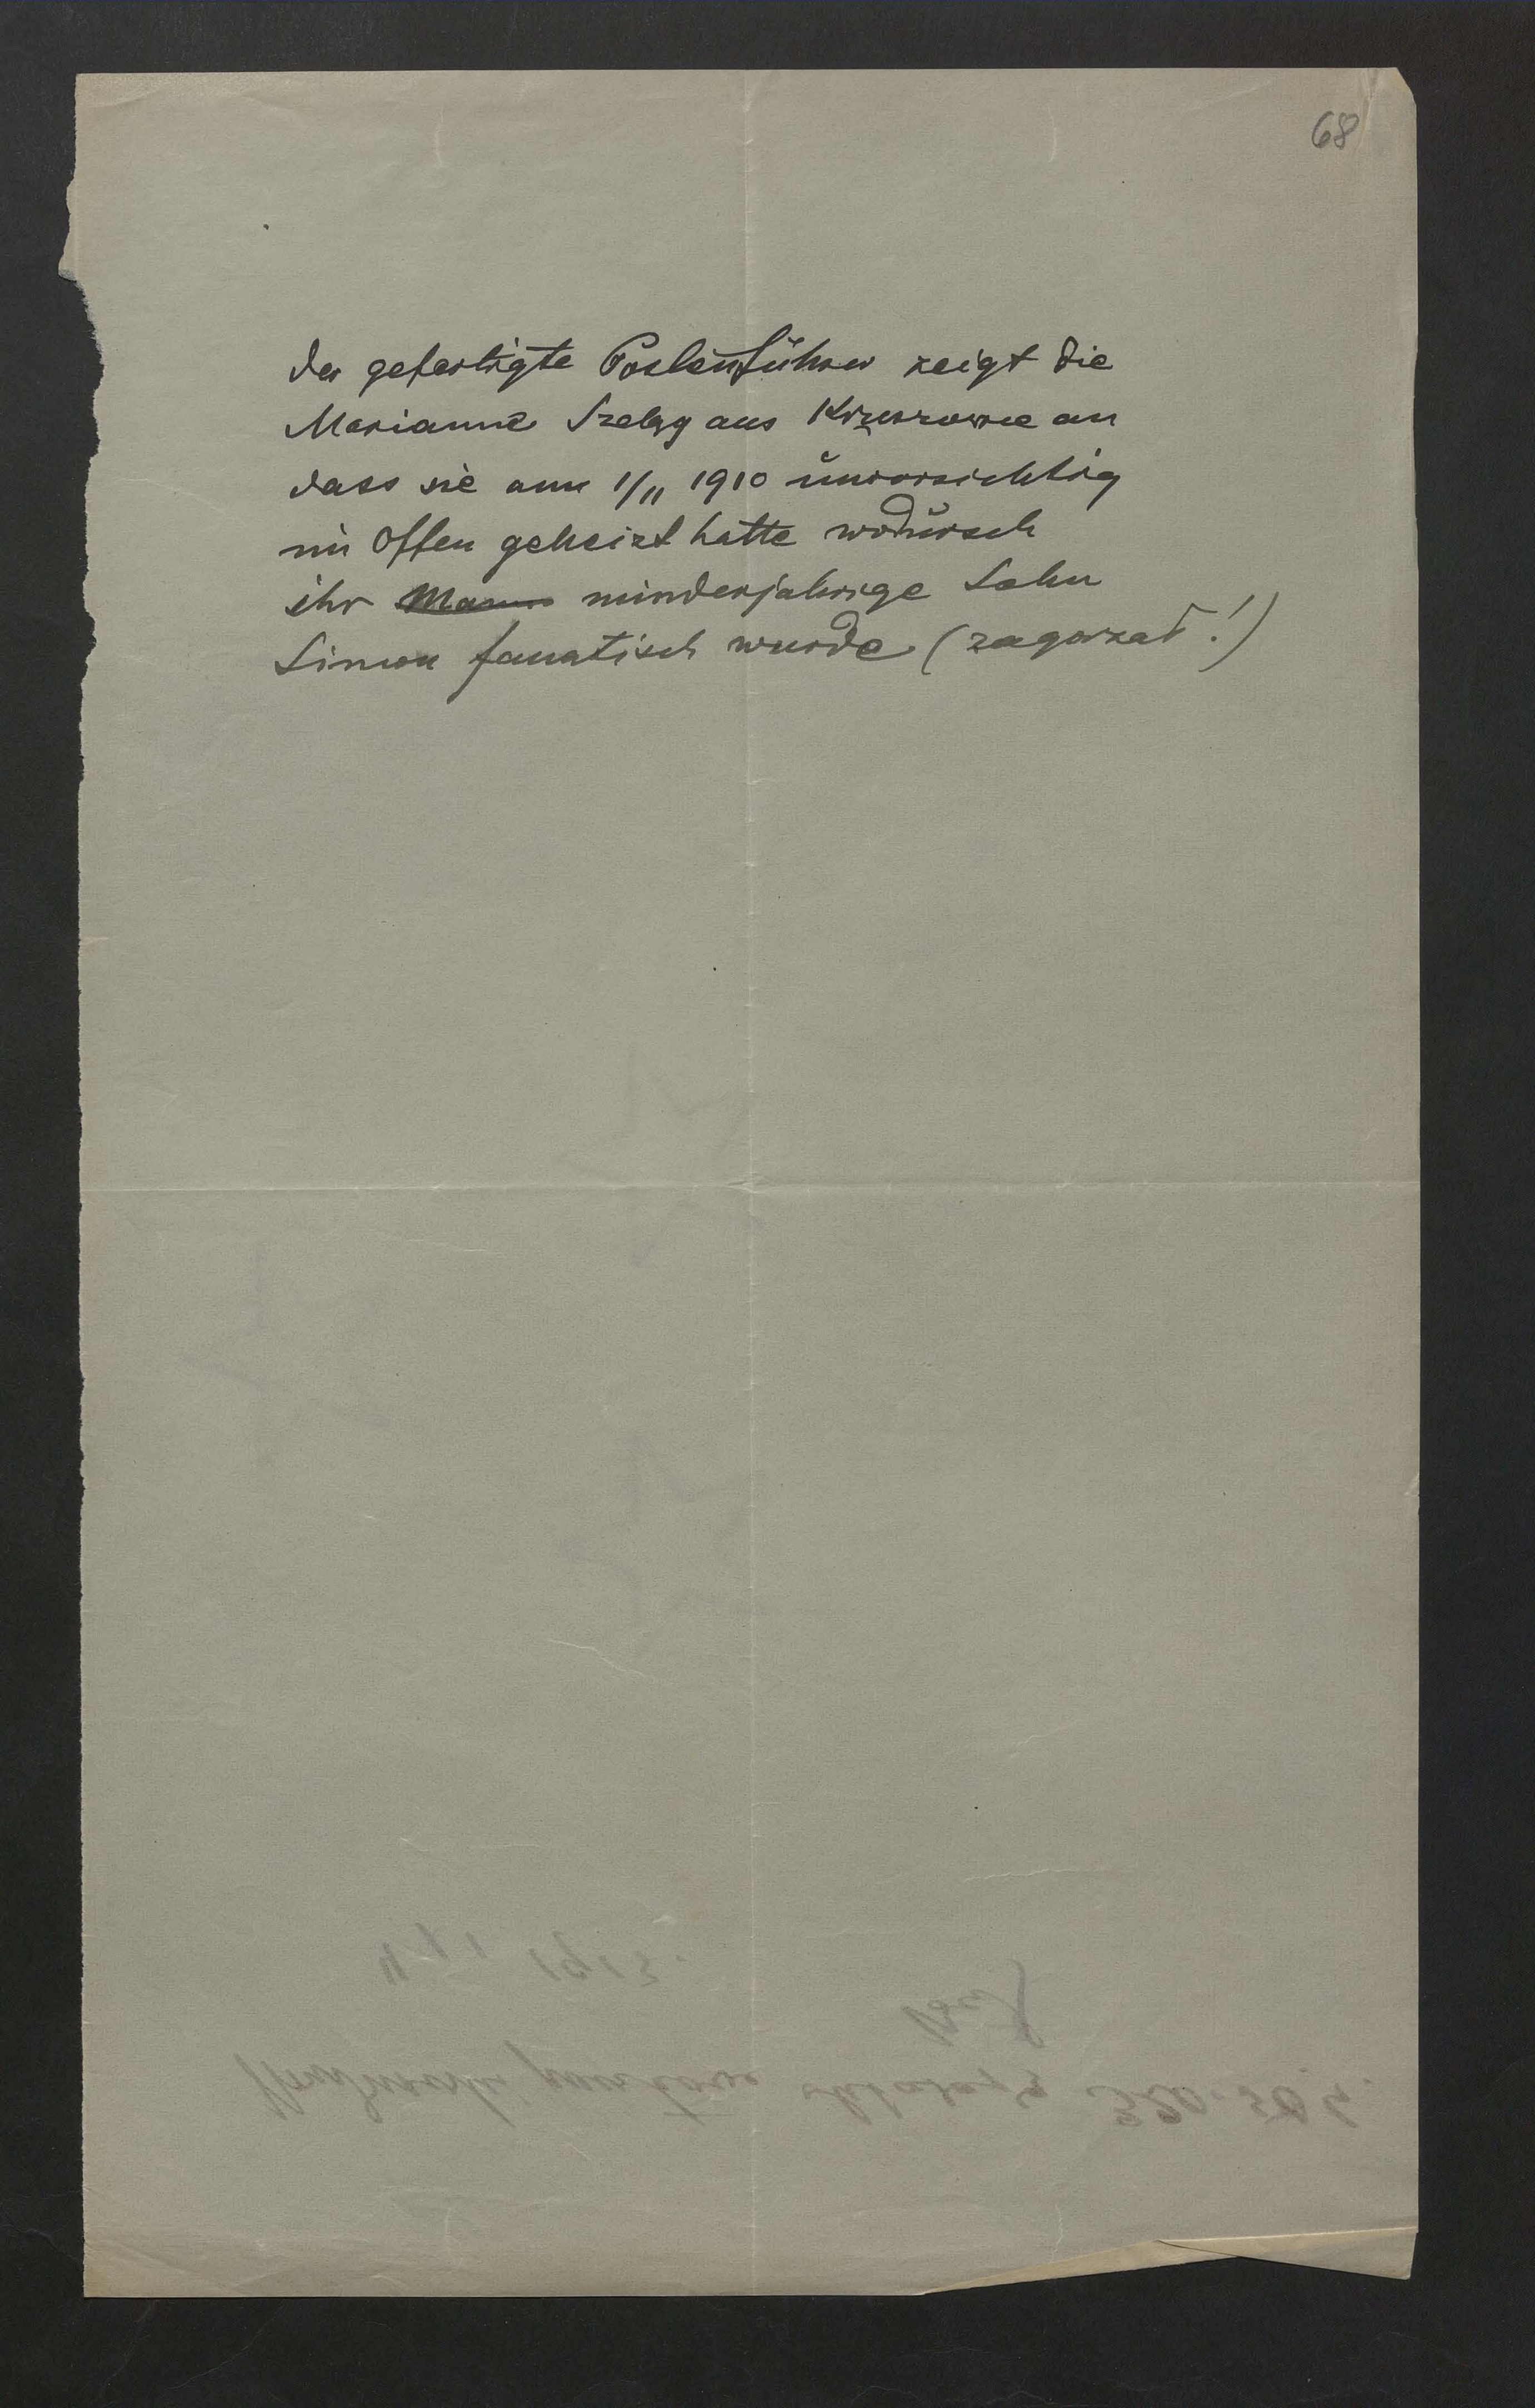 68
Der gefertigte Postenführer zeigt die
Marianne Szeląg aus an
dass sie am 1/11 1910 unvorsichtig
im Offen geheizt hatte wodursch
ihr minderjahrige Sohn
Simon fanatisch wurde (zagorzał!)
1913.
320.50 h.